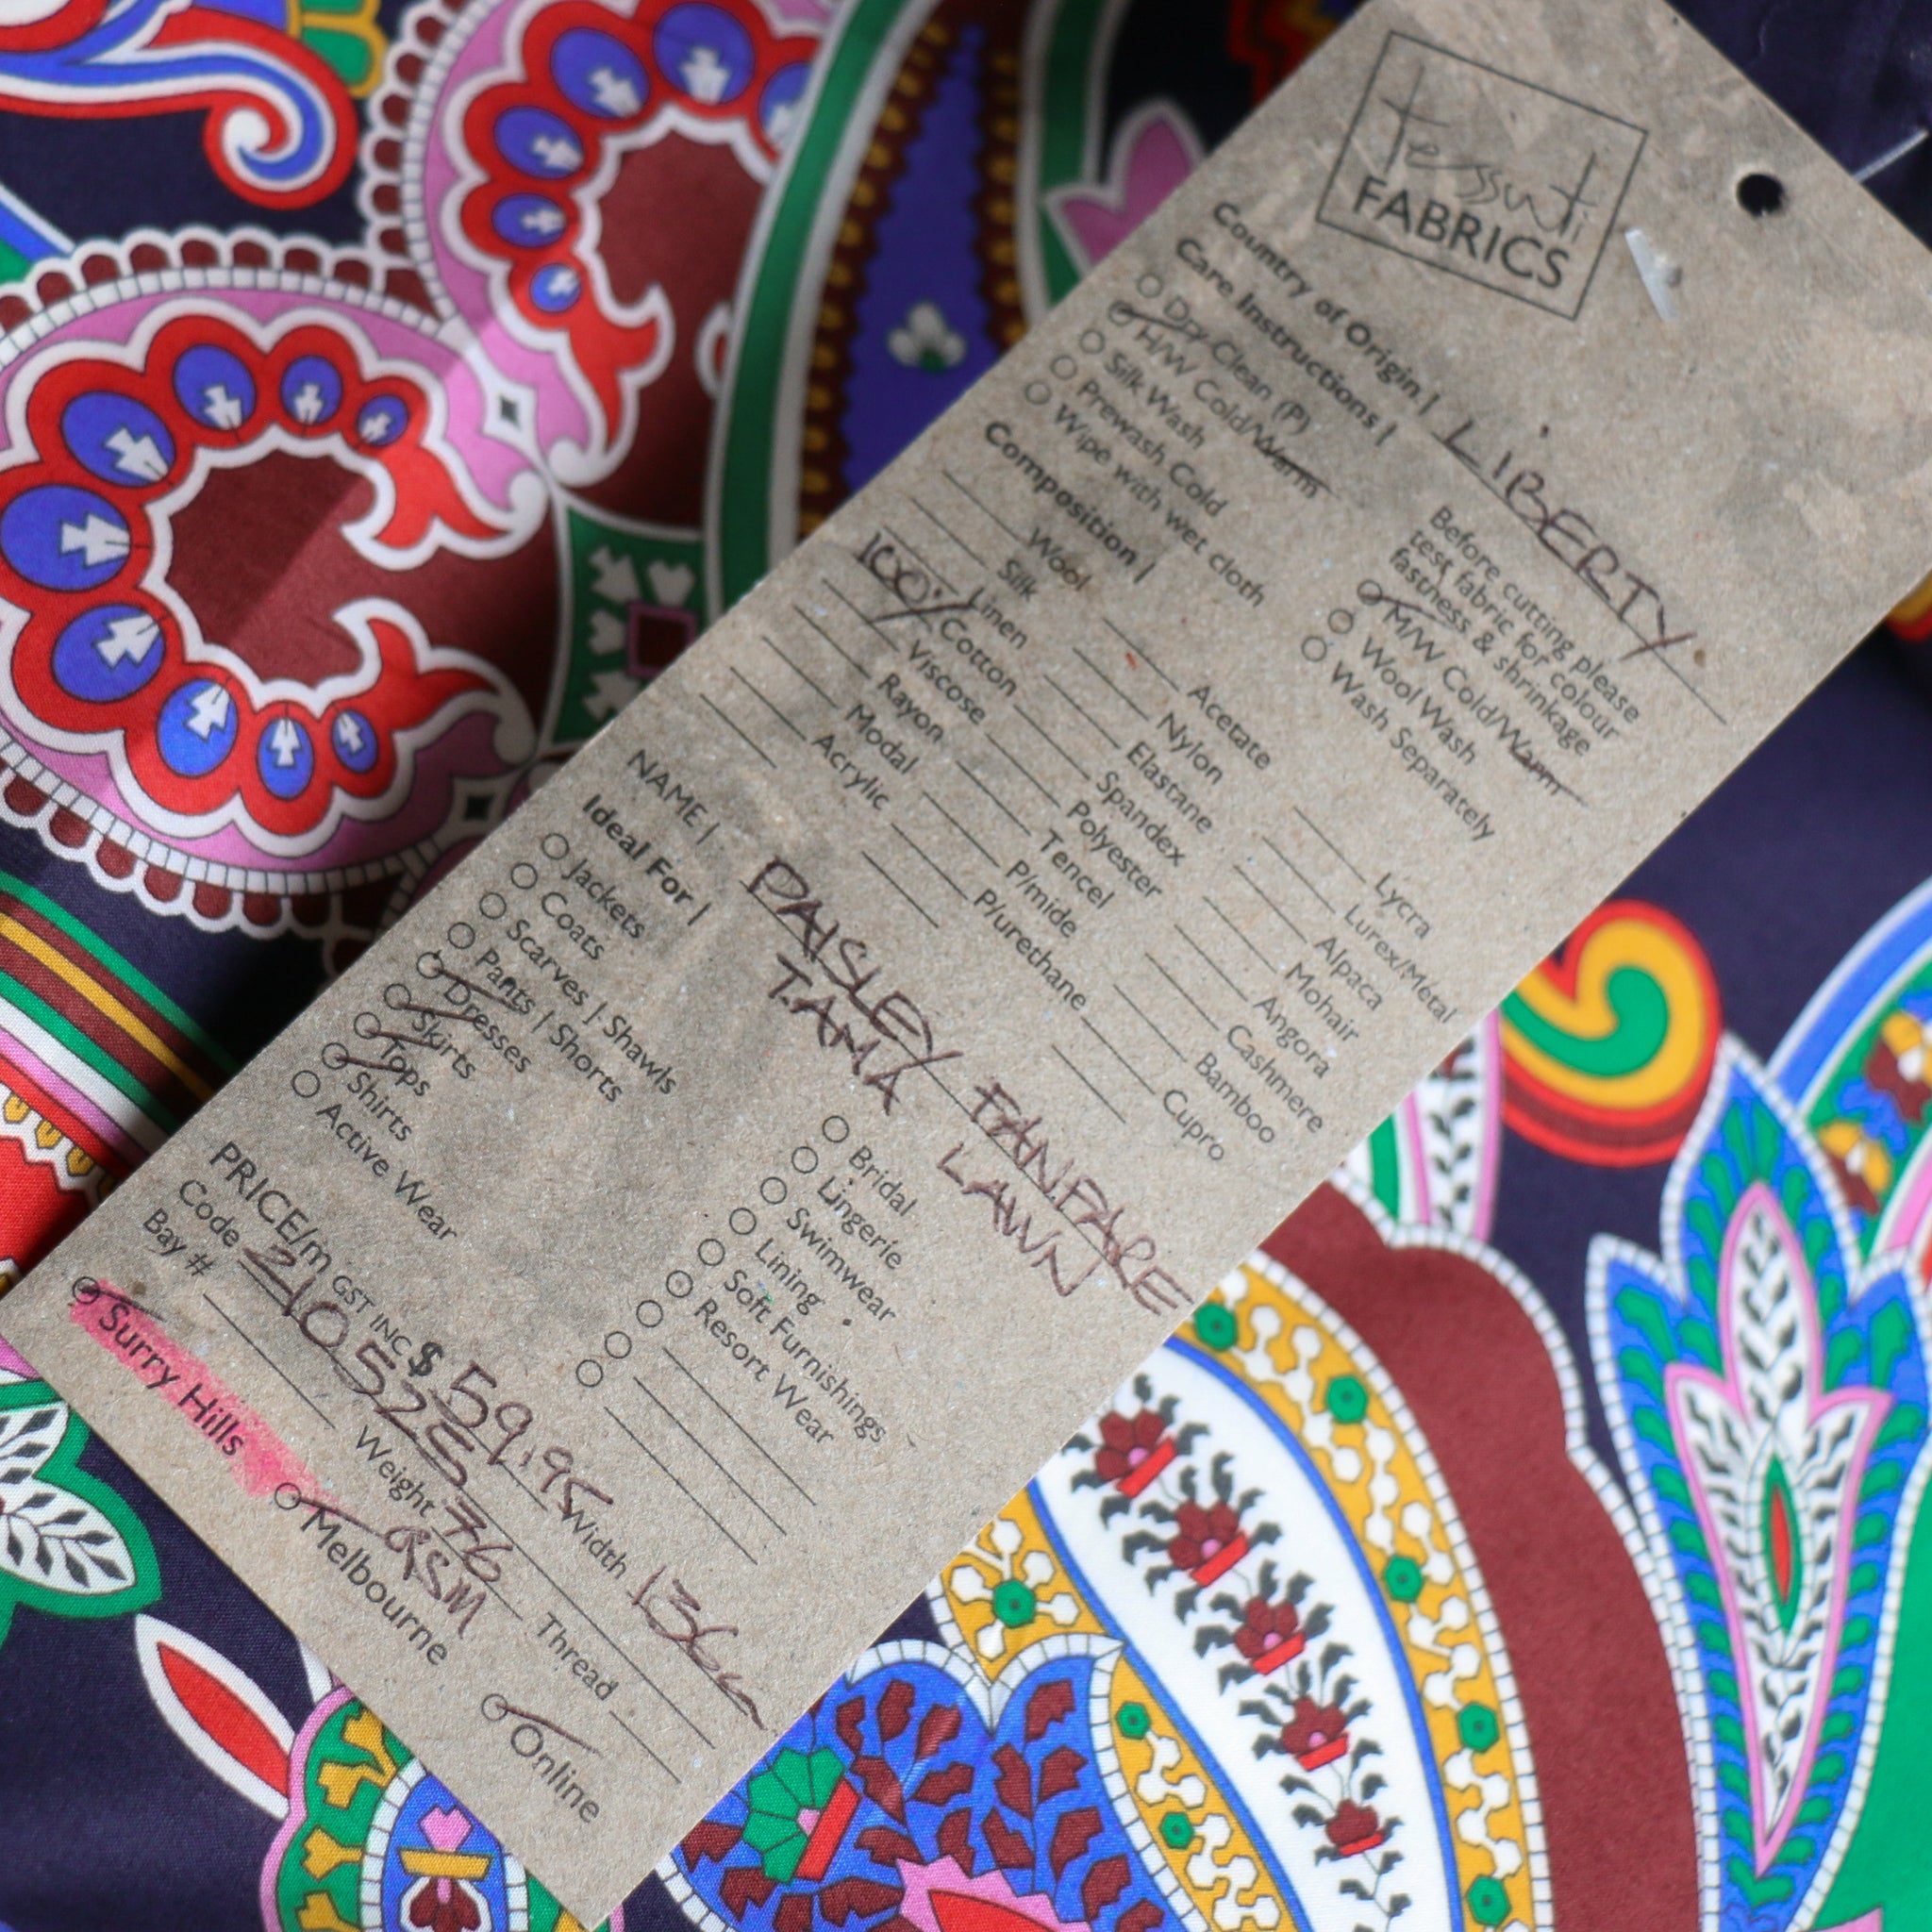 tessuti
FABRICS
Country of Origin | LIBERTY
Care Instructions |
Dry Clean (P)
H/W Cold/Warm
Silk Wash
Prewash Cold
Wipe with wet cloth
Before cutting please
test fabric for colour
fastness & shrinkage
M/W Cold/Warm
Wool Wash
Wash Separately
Composition |
Wool
Silk
Linen
100% Cotton
Viscose
Rayon
Modal
Acrylic
Acetate
Nylon
Elastane
Spandex
Polyester
Tencel
P/mide
P/urethane
Lycra
Lurex/Metal
Alpaca
Mohair
Angora
Cashmere
Bamboo
Cupro
NAME | PAISLEY FANFARE
TAMA LAWN
Ideal For |
Jackets
Coats
Scarves | Shawls
Pants | Shorts
Dresses
Skirts
Tops
Shirts
Active Wear
Bridal
Lingerie
Swimwear
Lining
Soft Furnishings
Resort Wear
PRICE/m GST INC $ 59.95 Width 136cm
Code 210528 Weight 76 GSM Thread
Bay #
Surry Hills Melbourne Online